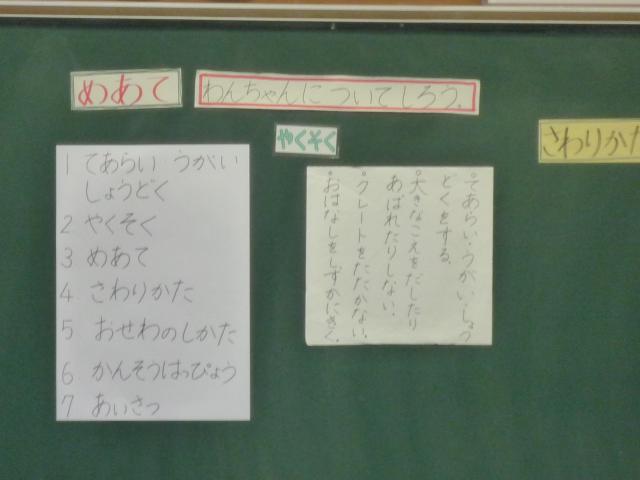 めあて
わんちゃんについてしろう.
やくそく
さわりかた
1 てあらい うがい
しょうどく
2 やくそく
3 めあて
4 さわりかた
5 おせわのしかた
6 かんそうはっぴょう
7 あいさつ
。てあらい・うがい・しょう
どくをする。
。大きなこえをだしたり
あばれたりしない。
。クレートをたたかない。
。おはなしをしずかにきく。